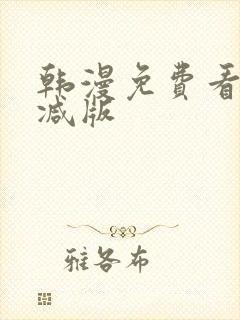 韩漫免费看
减版
雅各布